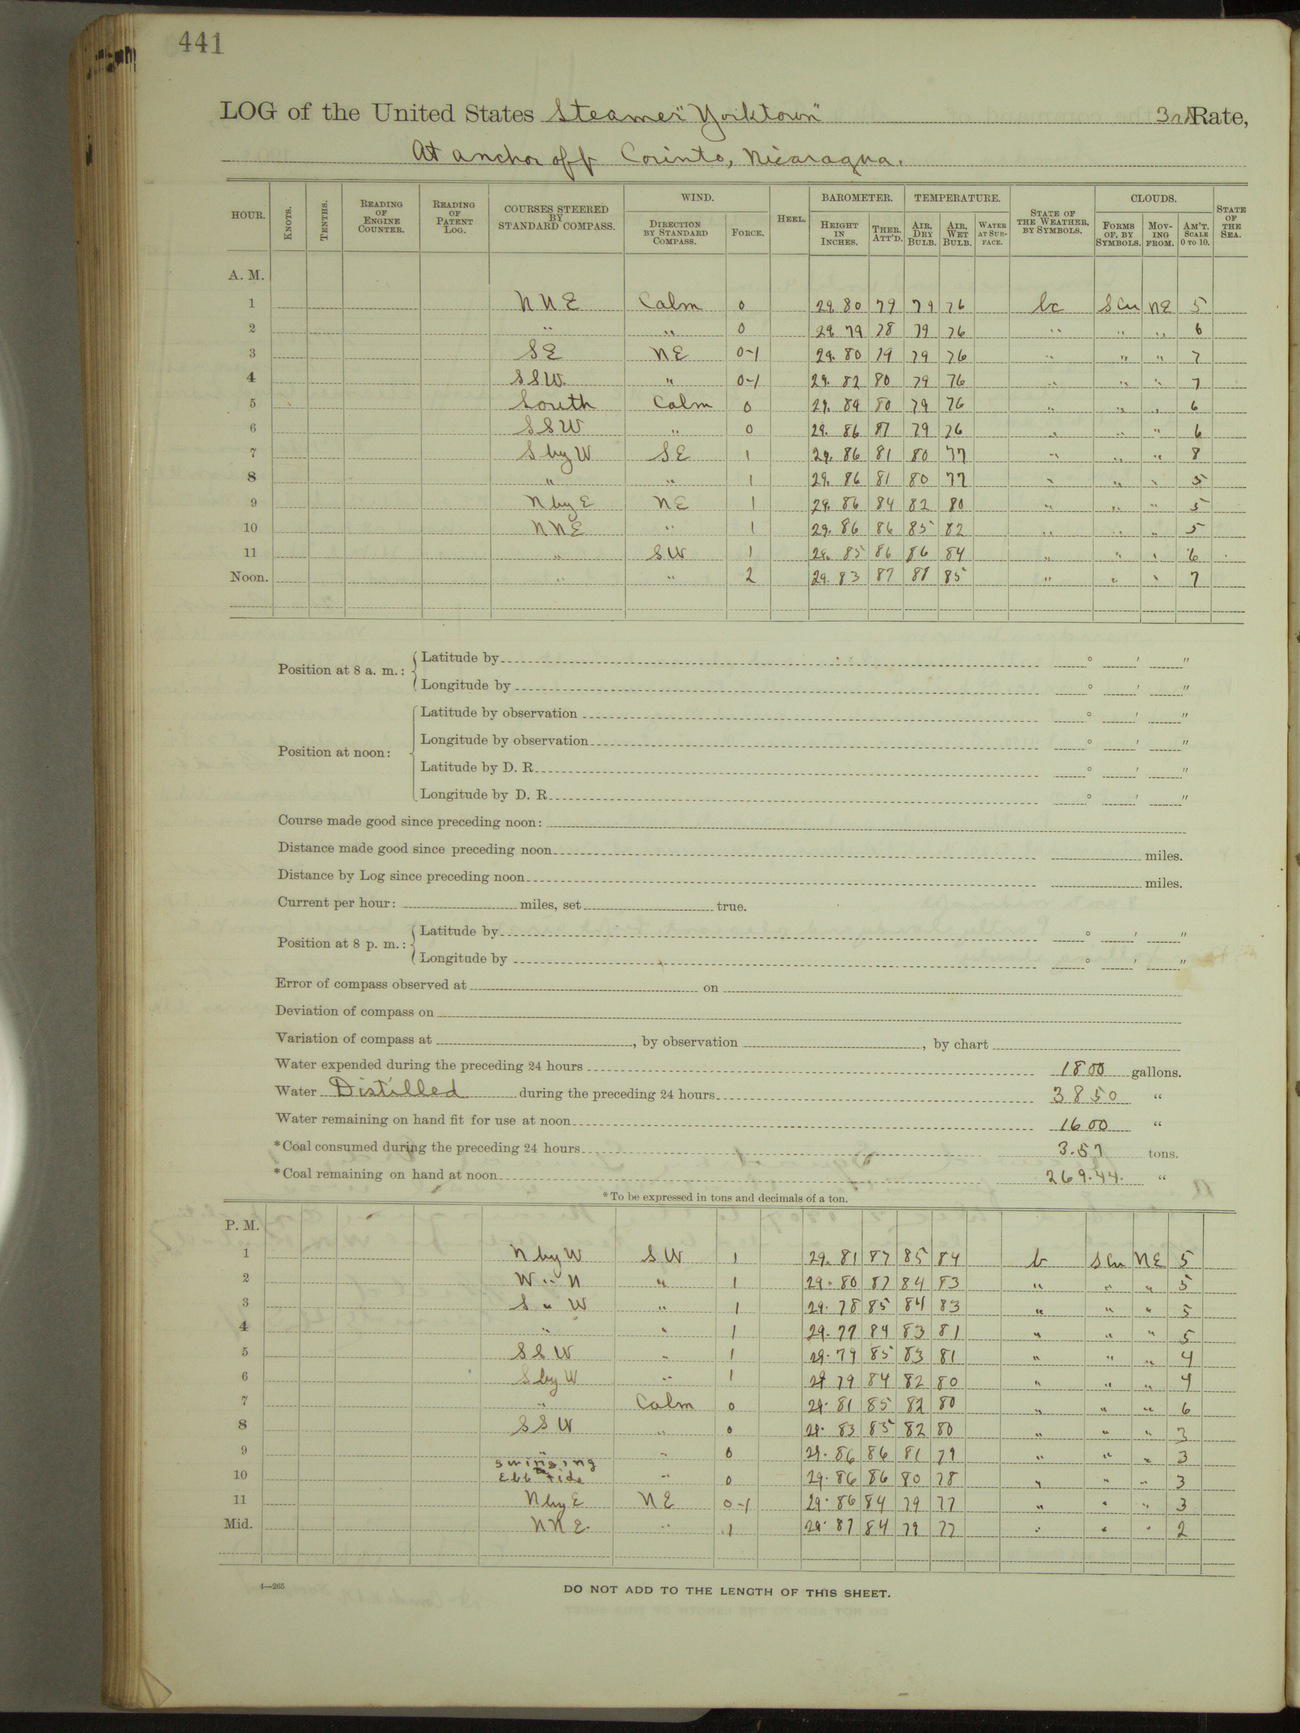 441
LOG of the United States Steamer "Yorktown" 3rd Rate,
At anchor off Corinto, Nicaragua.
HOUR. KNOTS. TENTHS. READING OF ENGINE COUNTER. READING OF PATENT LOG. COURSES STEERED BY STANDARD COMPASS. WIND. DIRECTION BY STANDARD COMPASS. FORCE. HEEL. BAROMETER. HEIGHT IN INCHES. THER. ATT'D. TEMPERATURE. AIR, DRY BULB. AIR, WET BULB. WATER AT SURFACE. STATE OF THE WEATHER, BY SYMBOLS. CLOUDS. FORMS OF, BY SYMBOLS. MOVING FROM. AM'T. SCALE 0 TO 10. STATE OF THE SEA.
A. M.
1 NNE Calm 0 29.80 79 79 76 bc SCu NE 5
2 " " 0 29.79 78 79 76 " " " 6
3 SE NE 0-1 29.80 79 79 76 " " " 7
4 SSW " 0-1 29.82 80 79 76 " " " 7
5 South Calm 0 29.84 80 79 76 " " " 6
6 SSW " 0 29.86 79 76 " " " 6
7 S by W SE 1 29.86 81 80 77 " " " 8
8 " " 1 29.86 81 80 77 " " " 5
9 N by E NE 1 29.86 84 82 80 " " " 5
10 NNE " 1 29.86 86 85 82 " " " 5
11 " SW 1 29.85 86 86 84 " " " 6
Noon. " " 2 29.83 87 88 85 " " " 7
Position at 8 a. m.: Latitude by ° ′ ″
Longitude by ° ′ ″
Latitude by observation ° ′ ″
Position at noon: Longitude by observation ° ′ ″
Latitude by D. R. ° ′ ″
Longitude by D. R. ° ′ ″
Course made good since preceding noon:
Distance made good since preceding noon miles.
Distance by Log since preceding noon miles.
Current per hour: miles, set true.
Position at 8 p. m.: Latitude by ° ′ ″
Longitude by ° ′ ″
Error of compass observed at on
Deviation of compass on
Variation of compass at , by observation , by chart
Water expended during the preceding 24 hours 1800 gallons.
Water Distilled during the preceding 24 hours 3850 "
Water remaining on hand fit for use at noon 1600 "
*Coal consumed during the preceding 24 hours 3.57 tons.
*Coal remaining on hand at noon 269.44. "
*To be expressed in tons and decimals of a ton.
P. M.
1 N by W SW 1 29.81 87 85 84 b SCu NE 5
2 W " N " 1 29.80 87 84 83 " " " 5
3 S " W " 1 29.78 85 84 83 " " " 5
4 " " 1 29.77 84 83 81 " " " 5
5 SSW " 1 29.79 85 83 81 " " " 4
6 S by W " 1 29 79 84 82 80 " " " 4
7 " Calm 0 29.81 85 82 80 " " " 6
8 SSW " 0 29.83 85 82 80 " " " 3
9 " " 0 29.86 86 81 79 " " " 3
swinging
10 Ebb tide " 0 29.86 86 80 78 " " " 3
11 N by E NE 0-1 29.86 84 79 77 " " " 3
Mid. NNE. " 1 29.87 84 79 77 " " " 2
4—265
DO NOT ADD TO THE LENGTH OF THIS SHEET.